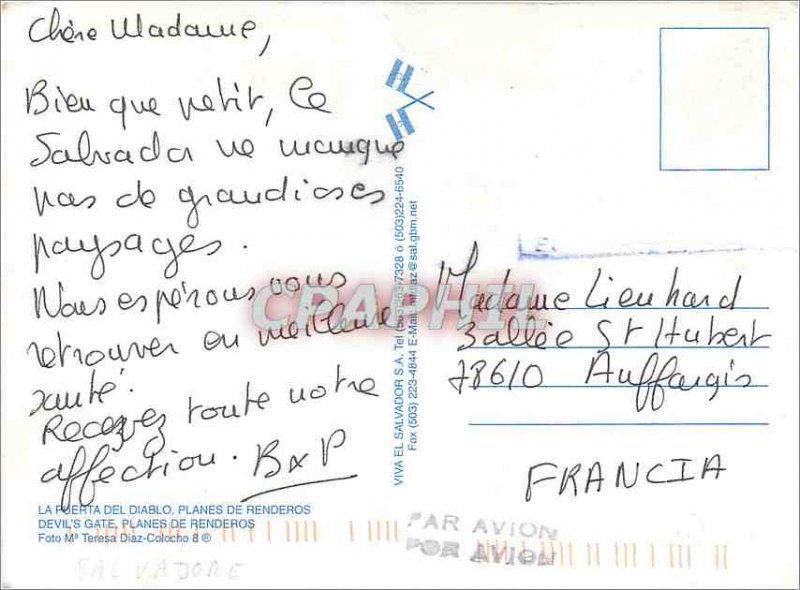 Chère Madame,
Bien que petit, Le
Salvador ne manque
pas de grandioses
paysages.
Nous espérons vous
retrouver en meilleure
santé.
Recevez toute notre
affection. BxP
LA PUERTA DEL DIABLO, PLANES DE RENDEROS
DEVIL'S GATE, PLANES DE RENDEROS
Foto Mª Teresa Díaz-Colocho 8 ®
SALVADORE
VIVA EL SALVADOR S.A. Tel (503) 7328 ó (503)224-6540
Fax (503) 223-4844 E-Mail @sal.gbm.net
CPAPHIL
LE
Madame Lienhard
3 allée St Hubert
78610 Auffargis
FRANCIA
PAR AVION
POR AVION